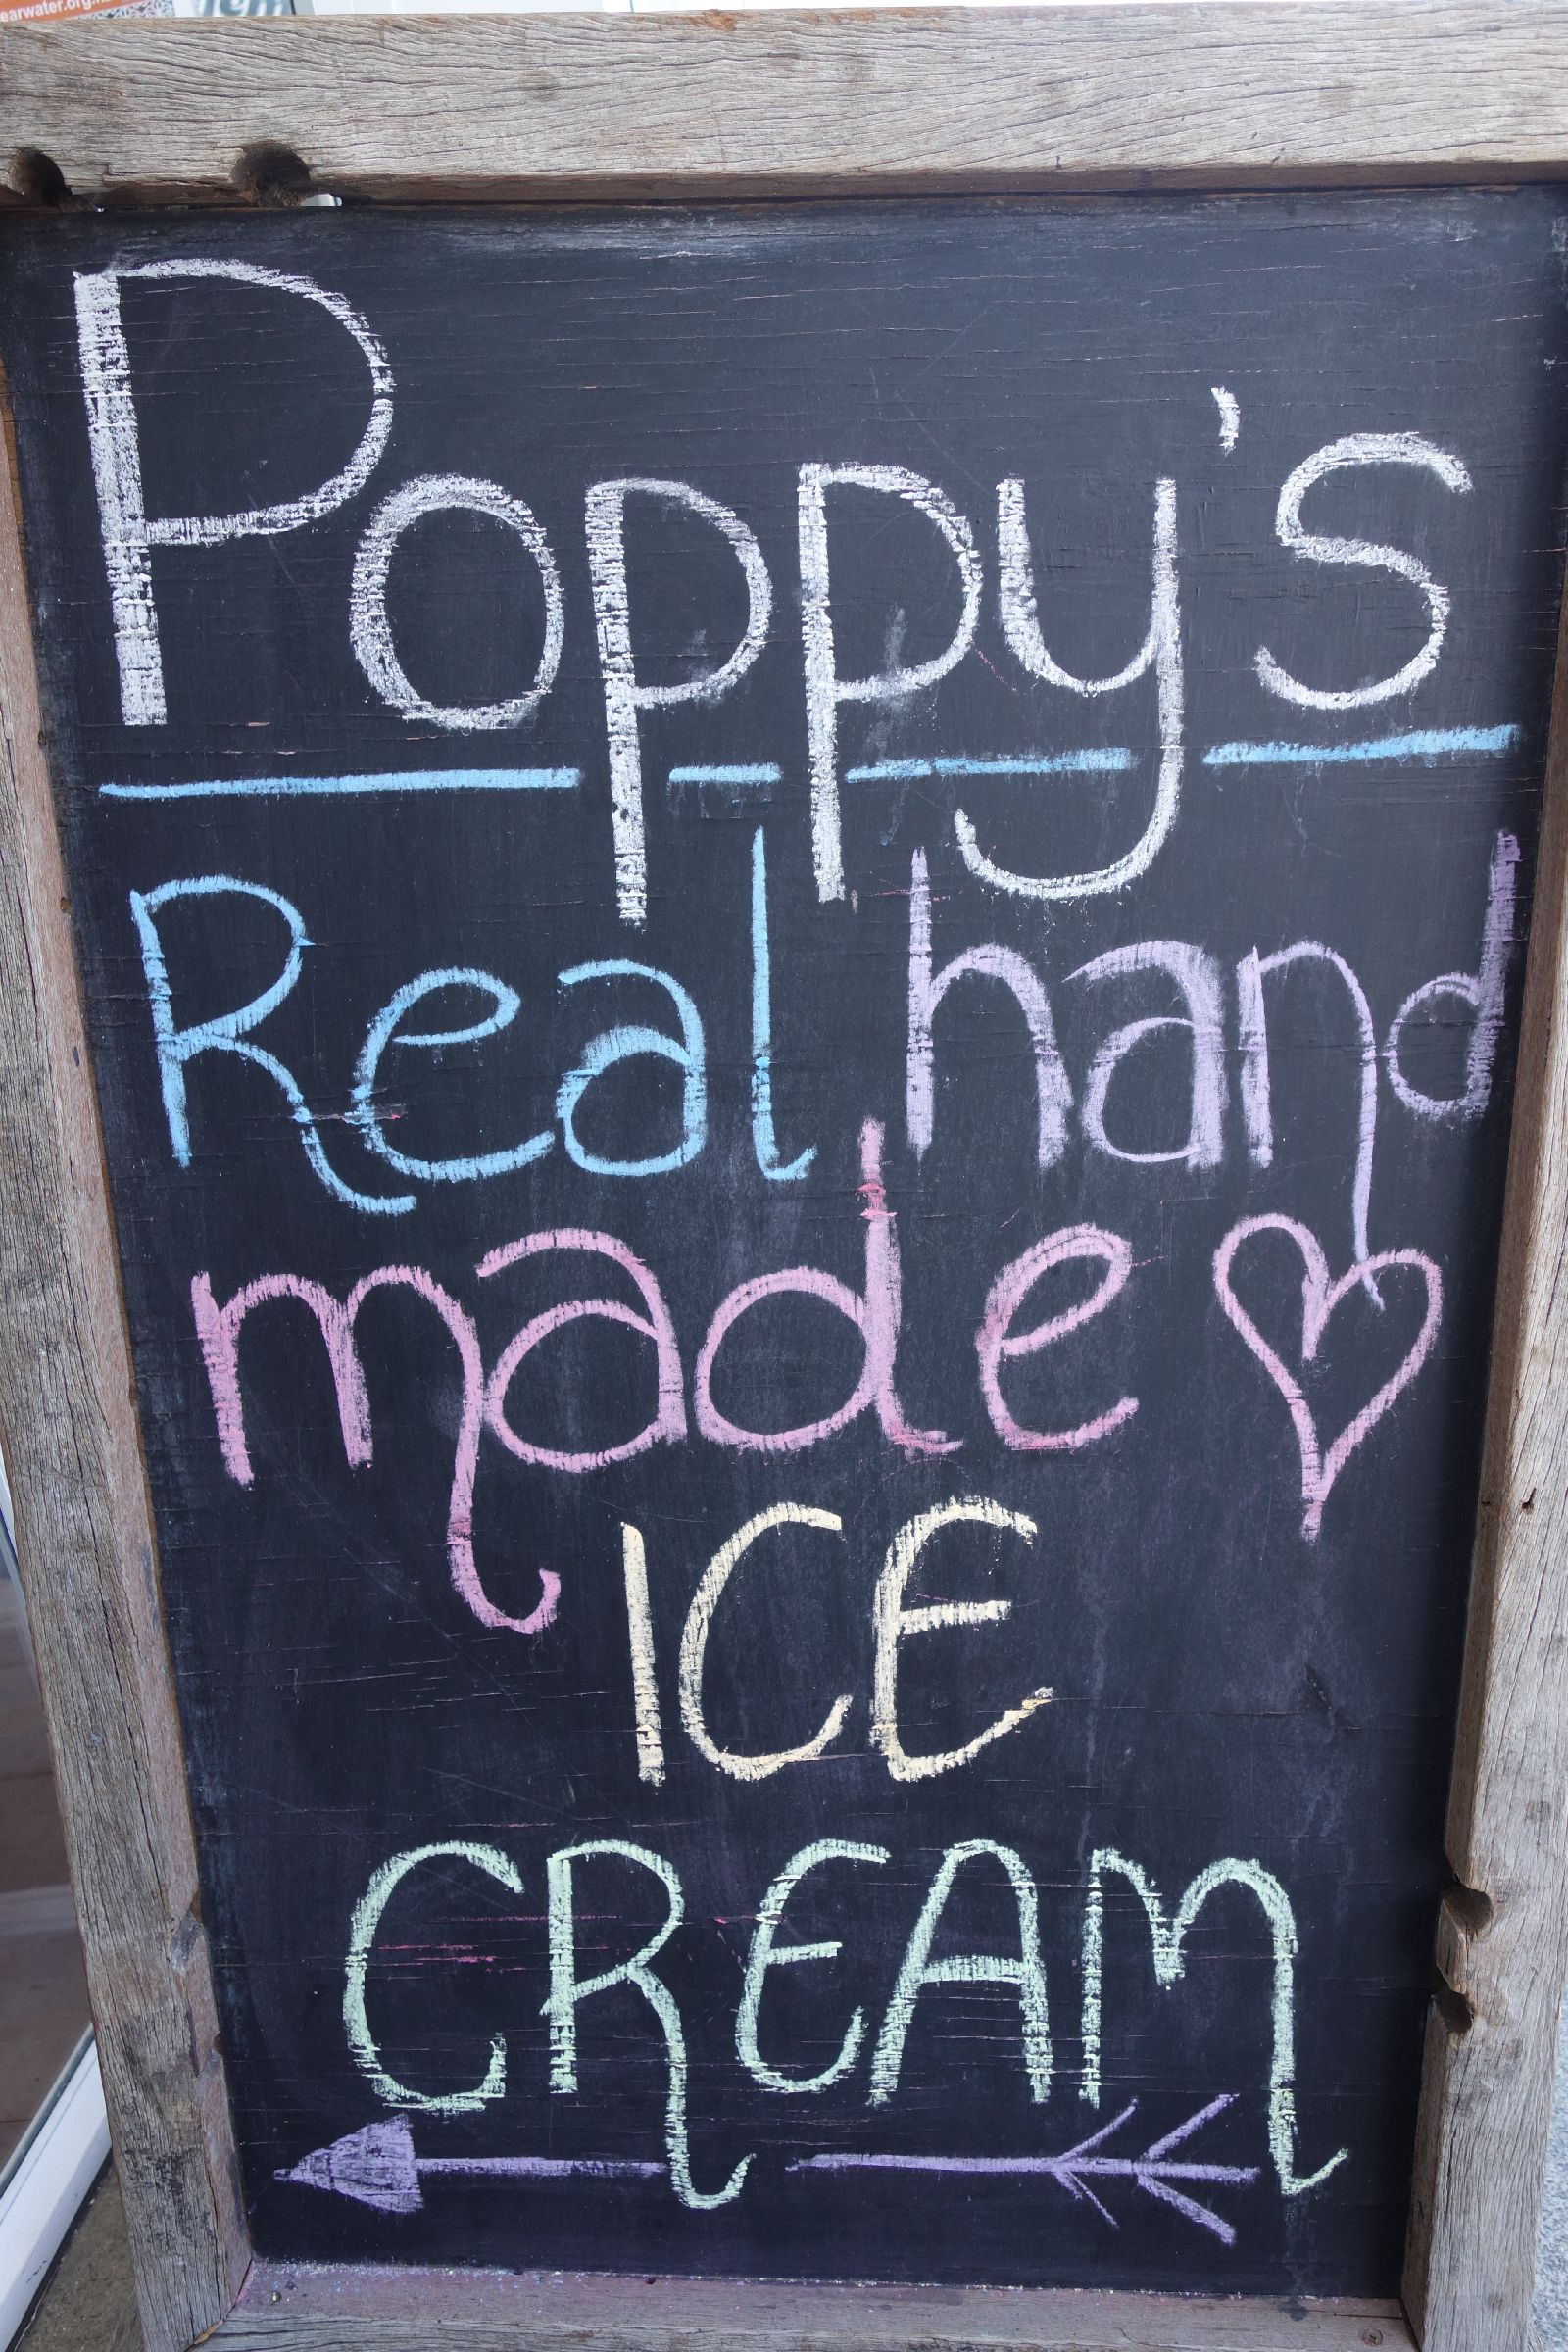 Poppy's
Real hand
made
ICE
CREAM